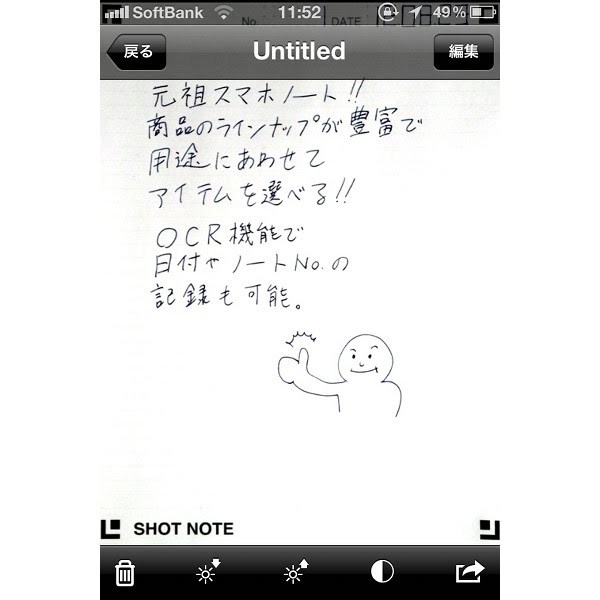 SoftBank 11:52 49%
No. DATE
戻る Untitled 編集
元祖スマホノート!!
商品のラインナップが豊富で
用途にあわせて
アイテムを選べる!!
OCR機能で
日付やノートNo.の
記録も可能。
SHOT NOTE